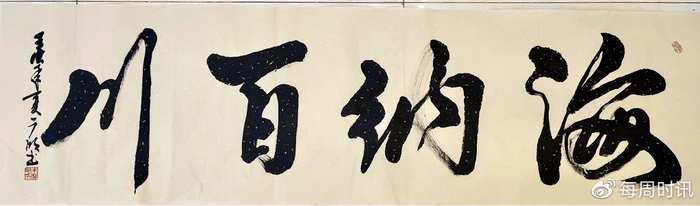 海纳百川
@每周时讯